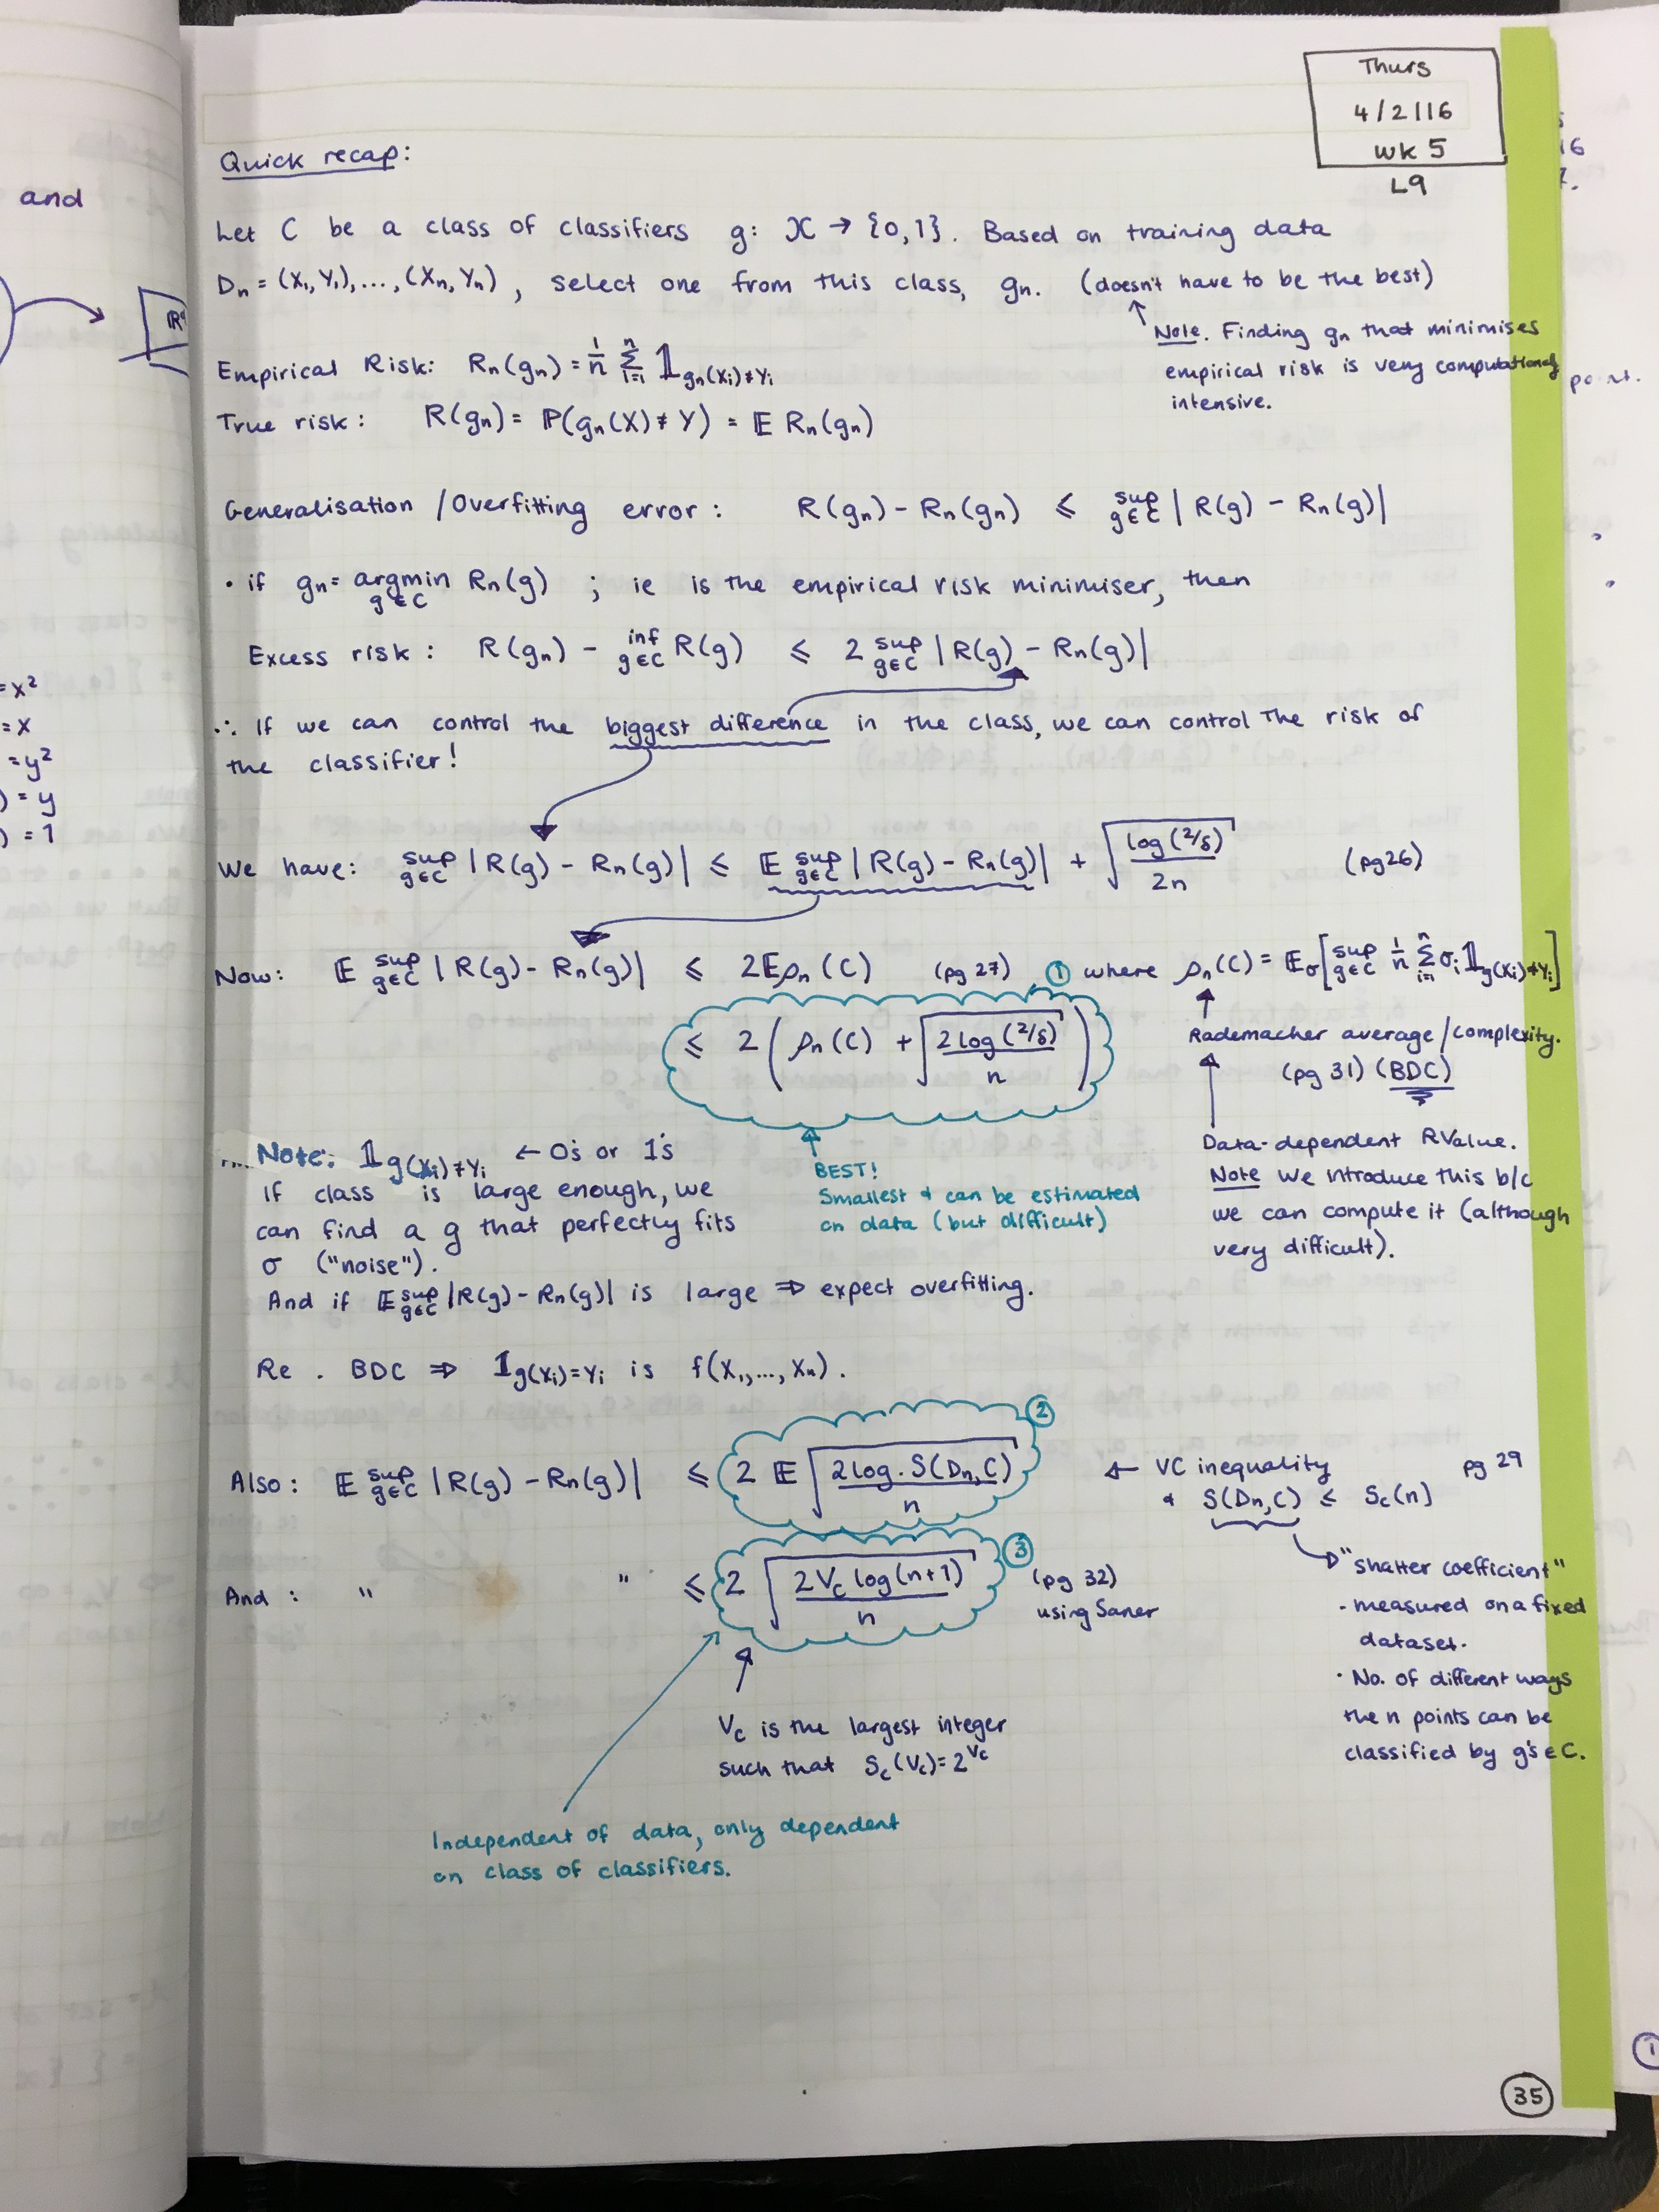 Thurs
4/2/16
WK 5
L9
Quick recap:
Let C be a class of classifiers g: X → {0,1}. Based on training data
Dn = (X1, Y1), ..., (Xn, Yn), select one from this class, gn. (doesn't have to be the best)
↑ Note. Finding gn that minimises
empirical risk is very computationally
intensive.
Empirical Risk: Rn(gn) = 1/n Σ_{i=1}^{n} 𝟙_{gn(Xi)≠Yi}
True risk: R(gn) = P(gn(X) ≠ Y) = E Rn(gn)
Generalisation / Overfitting error: R(gn) - Rn(gn) ≤ sup_{g∈C} | R(g) - Rn(g)|
• if gn = argmin_{g∈C} Rn(g) ; ie is the empirical risk minimiser, then
Excess risk: R(gn) - inf_{g∈C} R(g) ≤ 2 sup_{g∈C} |R(g) - Rn(g)|
∴ If we can control the biggest difference in the class, we can control the risk of
the classifier!
We have: sup_{g∈C} |R(g) - Rn(g)| ≤ E sup_{g∈C} |R(g) - Rn(g)| + √(log(2/δ)/2n) (pg 26)
Now: E sup_{g∈C} |R(g) - Rn(g)| ≤ 2Eρn(C) (pg 27) ① where ρn(C) = Eσ[sup_{g∈C} 1/n Σ_{i=1}^{n} σi 𝟙_{g(Xi)≠Yi}]
≤ 2(ρn(C) + √(2log(2/δ)/n))
Rademacher average/complexity.
(pg 31) (BDC)
Data-dependent RValue.
Note we introduce this b/c
we can compute it (although
very difficult).
BEST!
Smallest & can be estimated
on data (but difficult)
Note: 𝟙_{g(Xi)≠Yi} ← 0's or 1's
If class is large enough, we
can find a g that perfectly fits
σ ("noise").
And if E sup_{g∈C} |R(g) - Rn(g)| is large ⇒ expect overfitting.
Re. BDC ⇒ 𝟙_{g(Xi)=Yi} is f(X1,...,Xn).
Also: E sup_{g∈C} |R(g) - Rn(g)| ≤ 2 E √(2log.S(Dn,C)/n) ② ← VC inequality pg 29
& S(Dn,C) ≤ Sc(n)
"shatter coefficient"
- measured on a fixed
dataset.
• No. of different ways
the n points can be
classified by g's ∈ C.
And: " " ≤ 2 √(2Vc log(n+1)/n) ③ (pg 32)
using Saner
Vc is the largest integer
such that Sc(Vc) = 2^Vc
Independent of data, only dependent
on class of classifiers.
35
and
=x²
=x
=y²
) = y
) = 1